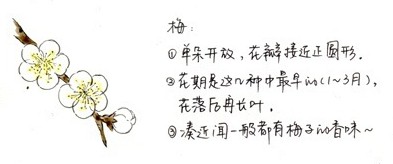 梅:
①单朵开放,花瓣接近正圆形.
②花期是这几种中最早的(1~3月),
在落后再长叶.
③凑近闻一般都有梅子的香味~